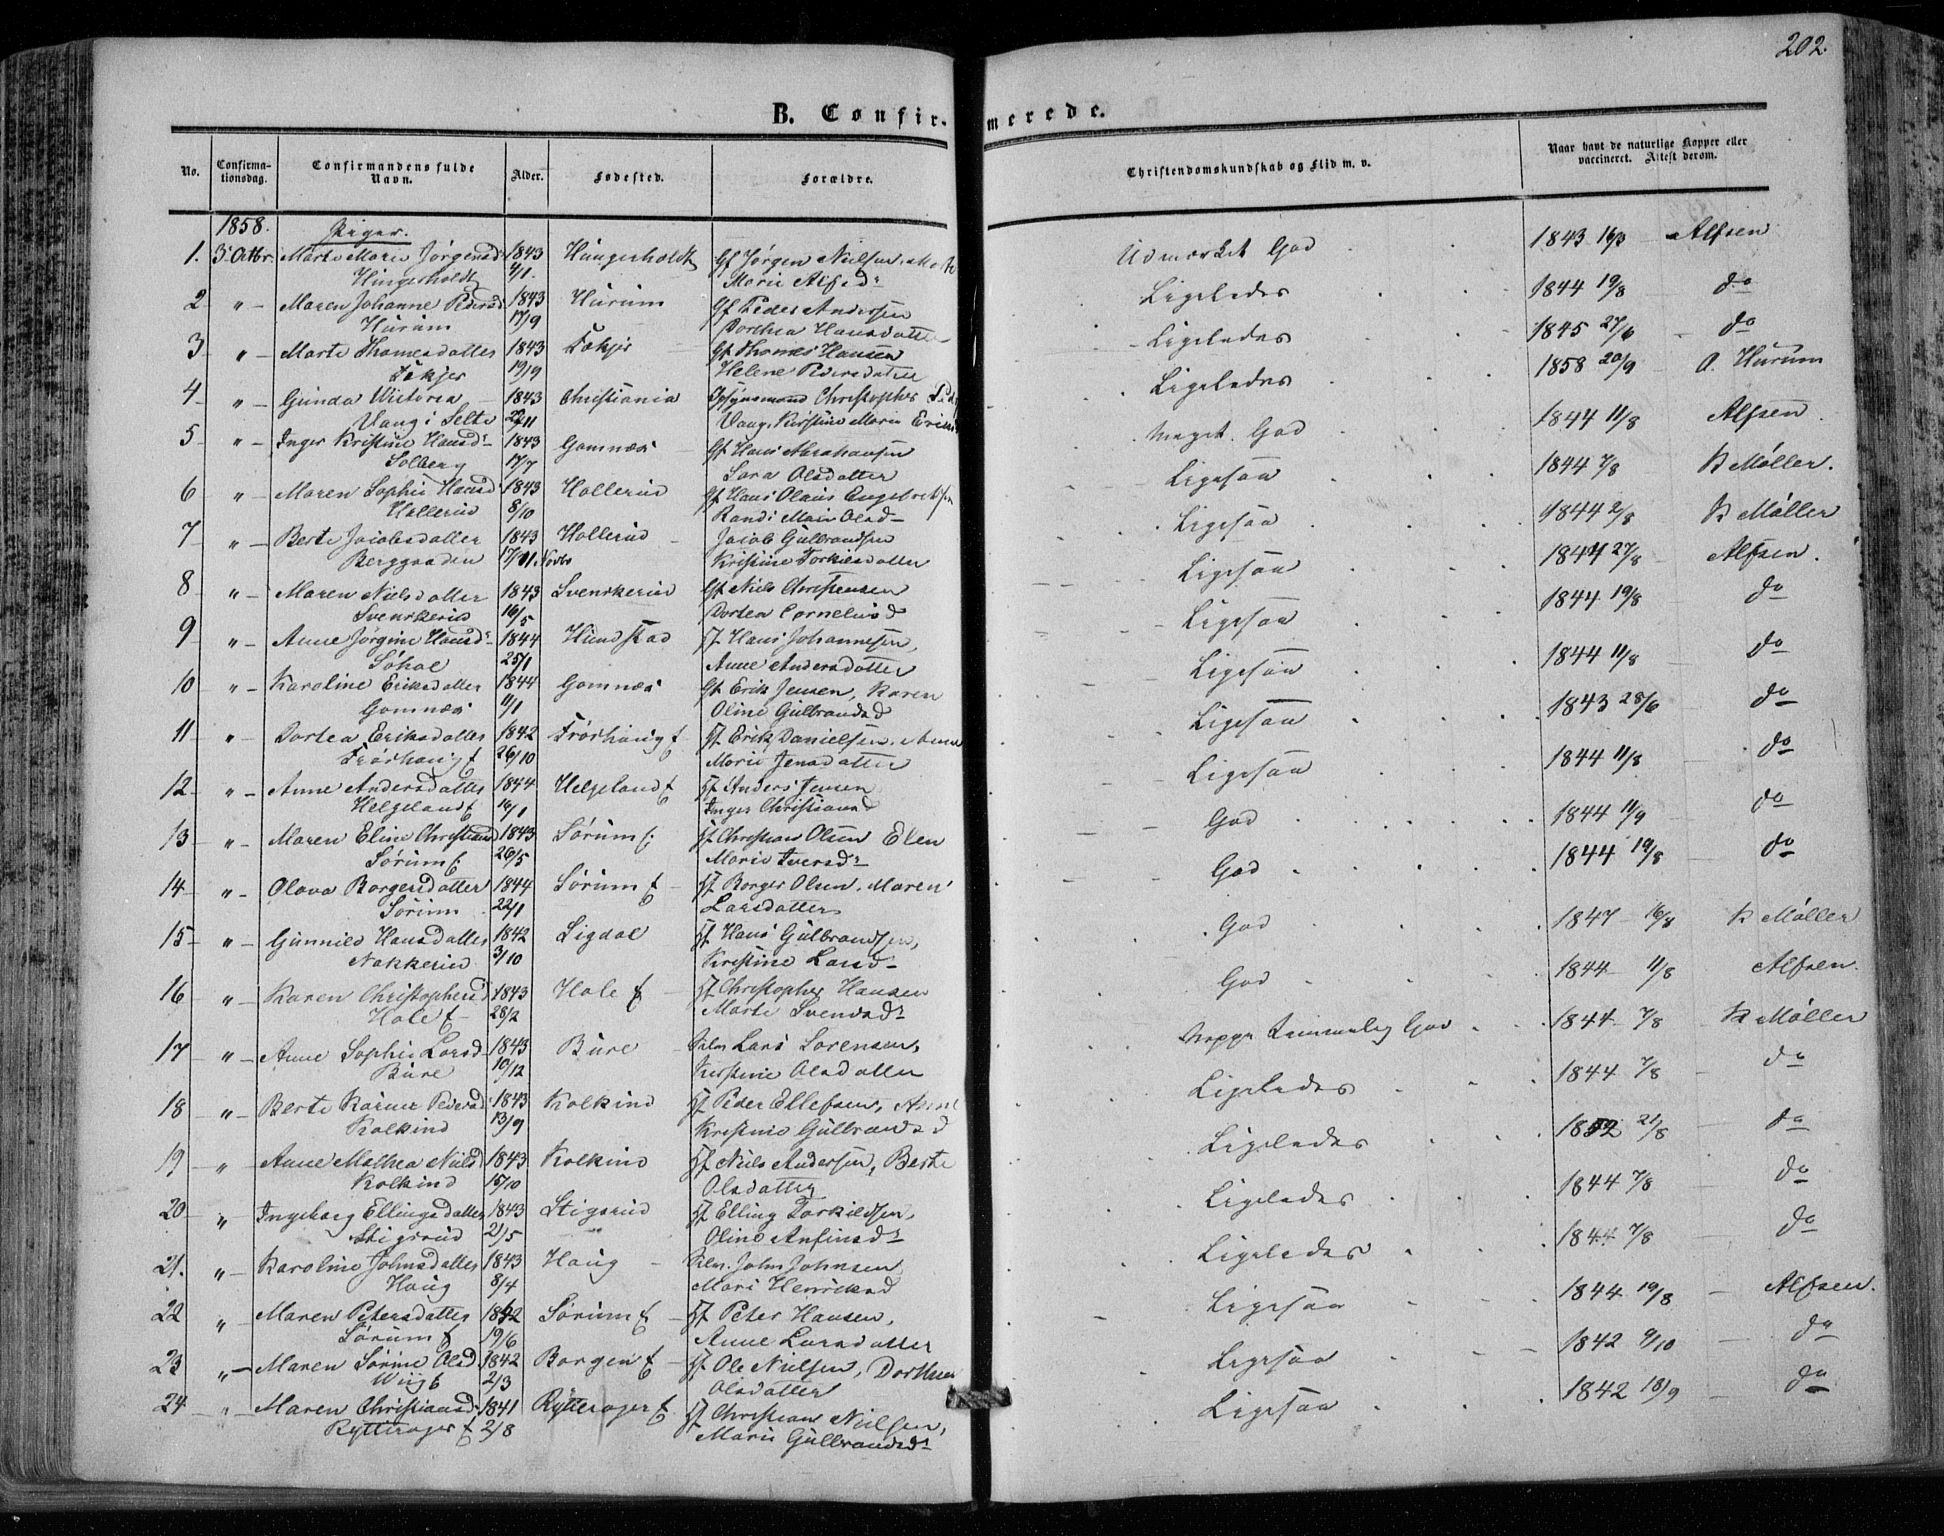 202.
B. Confirmerede.
No. Confirmationsdag. Confirmandens fulde Navn. Alder. Fødested. Forældre. Christendomskundskab og Flid m. v. Naar havt de naturlige Kopper eller vaccineret. Attest derom.
1858. Piger.
1. 3 Octbr. Marte Marie Jørgensd. 1843 Hungerholdt Gf Jørgen Nielsen, Udmærket God 1843 16/3 Alfsen
Hungerholdt 4/1. Marie
2 " Maren Johanne Pedersd. 1843 Hurum Gf Peder Andersen Ligeledes 1844 19/8 do
Hurum 17/9 Dorthea Hansdatter
3 " Marte Thomesdatter 1843 Løkjer Gf Thomes Hansen Ligeledes 1845 27/6 do
Løkjer 19/9 Helene Pedersdatter
4 " Gunda Victoria 1843 Christiania Christopher Ligeledes 1858 20/9 O. Hurum
Vang i Selte 22/11 Vang, Kirstine Marie
5 " Inger Kristine Hansd: 1843 Gomnæs Gf Hans Abrahamsen Meget God 1844 11/8 Alfsen.
Solberg 17/7 Sara Olsdatter
6 " Maren Sophie Hansd 1843 Hollerud Gf Hans Olaus Engebretsen Ligesaa 1844 7/8 K Møller.
Hollerud 8/10 Randi Marie Olsd
7 " Berte Jacobsdatter 1843 Hollerud Jacob Gulbrandsen Ligesaa 1844 2/8 K Møller
Berggaarden Kristine Torkilsdatter
8 " Maren Nielsdatter 1843 Svenskerud Gf Niels Christensen Ligesaa 1844 27/8 Alfsen.
Svenskerud 16/5 Dortea Cornelius d
9 " Anne Jørgine Hansd: 1844 Hundstad Hf Hans Johannesen, Ligesaa 1844 19/8 do
Søhol 25/1 Anne Andersdatter
10 " Karoline Eriksdatter 1844 Gomnæs Gf Erik Jensen, Karen Ligesaa 1844 11/8 do
Gomnæs 11/1 Oline Gulbrandsd
11 " Dortea Eriksdatter 1842 Frørhaug E Hf Erik Danielsen, Anne Ligesaa 1843 28/6 do
Frørhaug E 26/10 Marie Jensdatter
12 " Anne Andersdatter 1844 Helgeland E Hf Anders Jensen Ligesaa 1844 11/8 do
Helgeland E 16/1 Inger Christiansd
13 " Maren Eline Christiansd 1843 Sørum E. Hf Christian Olsen Elen God 1844 11/9 do
Sørum E. 26/5 Marie Iversd:
14 " Olava Borgersdatter 1844 Sørum E Hf Borger Olsen, Maren God 1844 19/8 do
Sørum 22/1 Larsdatter
15 " Gunnild Hansdatter 1842 Sigdal Hf Hans Gulbrandsen, God 1847 16/8 K Møller
Nakkerud 3/10 Kristine Larsd
16 " Karen Christophersd 1843 Hole E Hf Christopher Hansen God 1844 11/8 Alfsen.
Hole E 28/2 Marte Svensd:
17 " Anne Sophie Larsd 1843 Bure Lars Sorensen, Noppe temmelig God 1844 7/8 K Møller
Bure 10/12 Kerstine Olsdatter
18 " Berte Karine Pedersd 1843 Kolkind Hf Peder Ellefsen, Anne Ligeledes 1844 7/8 do
Kolkind 13/9 Kristine Gulbrandsd
19 " Anne Mathea Nielsd 1843 Kolkind Hf Niels Andersen, Berte Ligeledes 1852 21/8 do
Kolkind 15/10 Olsdatter
20 " Ingeborg Ellingsdatter 1843 Stigsrud Hf Elling Torkildsen, Ligeledes 1844 7/8 do
Stigsrud 2/5 Oline Anfinsd:
21. " Karoline Johnsdatter 1843 Haug John Johnsen Ligeledes 1844 7/8 do
Haug 8/4 Mari Henriksd
22 " Maren Petersdatter 1842 Sørum E Hf Peter Hansen, Ligesaa 1844 19/8 Alfsen.
Sørum E 19/6 Anne Larsdatter
23 " Maren Sørine Olsd. 1842 Borgen E Hf Ole Nielsen, Dorthea Ligesaa 1842 9/10 do
Wiig E 2/3 Olsdatter
24 " Maren Christiansd. 1841 Rytterager E Hf Christian Nielsen, Ligesaa 1842 18/9 do
Rytterager E 2/8 Marie Gulbrandsd: